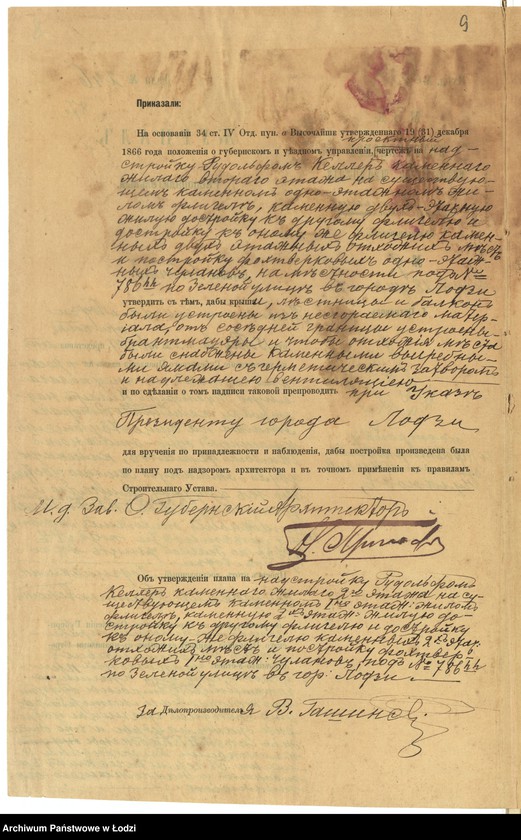 9
Приказали:
На основаніи 34 ст. IV Отд. пун. а Высочайше утвержденнаго 19 (31) декабря
1866 года положенія о губернскомъ и уѣздномъ управленіи, чертежъ на над-
стройку Рудольфомъ Келлеръ каменнаго
жилаго втораго этажа на существую-
щемъ каменномъ одно-этажномъ жи-
ломъ флигелѣ, каменную двухъ-этажную
жилую достройку къ другому флигелю и
достройку къ оному же флигелю камен-
ныхъ двухъ этажныхъ отхожихъ мѣстъ
и постройку фахтверковыхъ одно-этаж-
ныхъ чулановъ, на мѣстности подъ №
786 по Зеленой улицѣ въ городѣ Лодзи
утвердить съ тѣмъ, дабы крыши, лѣстницы и балконъ
были устроены изъ несгораемаго матер-
іала, отъ сосѣдней границы устроены
брантмауеры и чтобы отхожія мѣста
были снабжены каменными выгребны-
ми ямами съ герметическимъ затворомъ
и надлежащею вентиляціею
и по сдѣланіи о томъ надписи таковой препроводить при Указѣ
Президенту города Лодзи
для врученія по принадлежности и наблюденія, дабы постройка произведена была
по плану подъ надзоромъ архитектора и въ точномъ примѣненіи къ правиламъ
Строительнаго Устава.
И. д. Зав. С. Губернскій Архитекторъ
Объ утвержденіи плана на надстройку Рудольфомъ
Келлеръ каменнаго жилаго 2го этажа на су-
ществующемъ каменномъ 1но этаж: жиломъ
флигелѣ, каменную 2хъ этаж: жилую до-
стройку къ другому флигелю и достройку
къ оному-же флигелю каменныхъ 2хъ этаж.
отхожихъ мѣстъ и постройку фахтвер-
ковыхъ 1но этаж: чулановъ, подъ № 786
по Зеленой улицѣ въ гор: Лодзи.
За Дѣлопроизводителя В.
Archiwum Państwowe w Łodzi